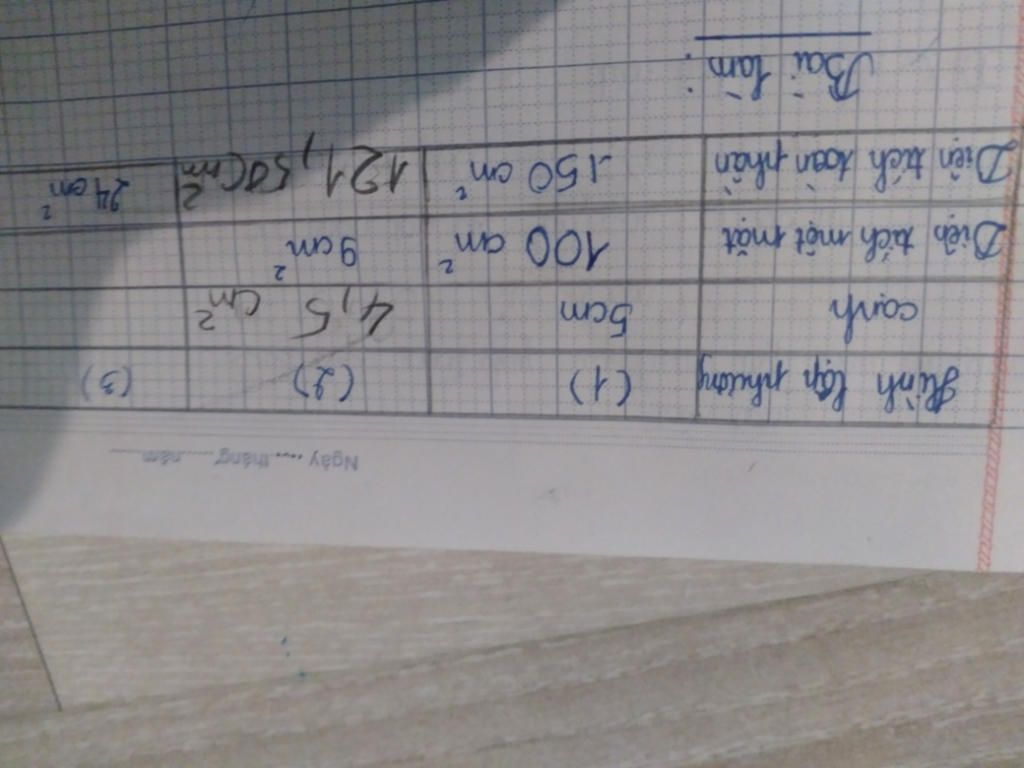 Ngày .... tháng ..... năm ..........
Hình lập phương (1) (2) (3)
cạnh 5cm 4,5 cm²
Diện tích một mặt 100 cm² 9cm²
Diện tích toàn phần 150 cm² 121,50cm² 24cm²
Bài làm: